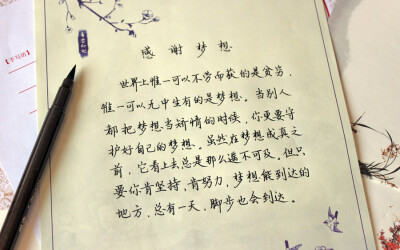 感谢梦想
世界上唯一可以不劳而获的是贫穷,
唯一可以无中生有的是梦想。当别人
都把梦想当矫情的时候,你更要守
护好自己的梦想。虽然在梦想成真之
前,它看上去总是那么遥不可及。但只
要你肯坚持,肯努力,梦想能到达的
地方,总有一天,脚步也会到达。